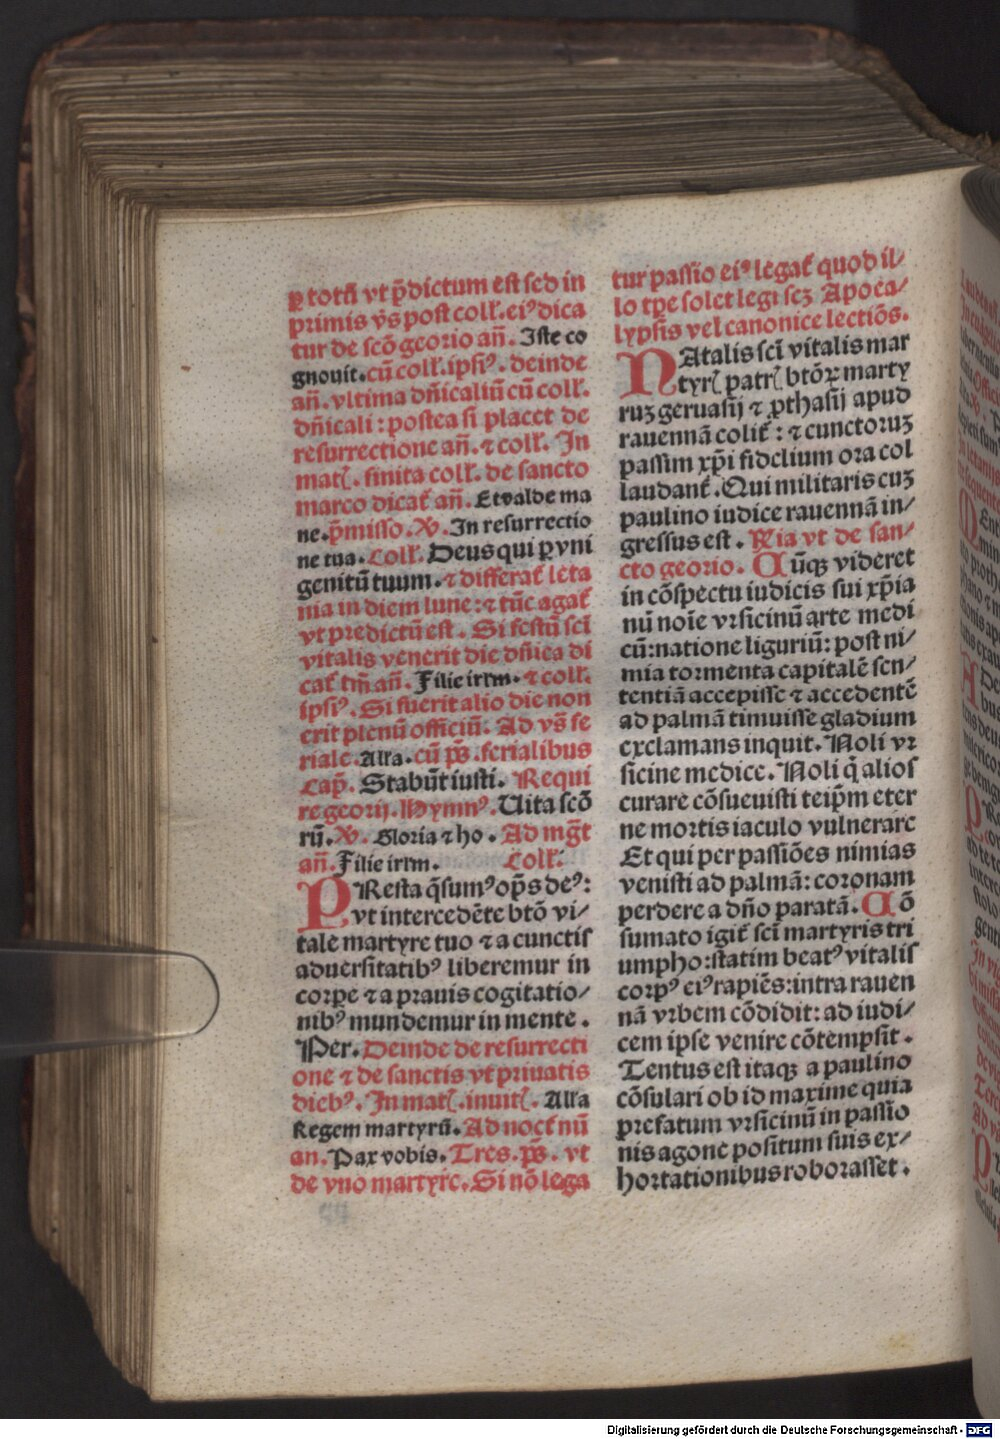 ꝑ totũ vt p̄dictum est sed in
primis v̄s post coll̃. eiꝰ dica
tur de scõ georio añ. Iste co
gnouit. cũ coll̃. ipsiꝰ. deinde
añ. vltima dñicaliũ cũ coll̃.
dñicali : postea si placet de
resurrectione añ. ⁊ coll̃. In
mat̃. finita coll̃. de sancto
marco dicat̃ añ. Et valde ma
ne. p̄misso. ℣. In resurrectio
ne tua. Coll̃. Deus qui ꝑ vni
genitũ tuum. ⁊ differat̃ leta
nia in diem lune : ⁊ tũc agat̃
vt predictũ est. Si festũ sci̅
vitalis venerit die dñica di
cat̃ tm̃ añ. Filie irlm. ⁊ coll̃.
ipsiꝰ. Si fuerit alio die non
erit plenũ officiũ. Ad vs̃ fe
riale. Alla. cũ ps̃. ferialibus
Cap̃. Stabũt iusti. Requi
re georij. Hymnꝰ. Uita scõ
rũ. ℣. Gloria ⁊ ho. Ad mg̃t
añ. Filie irlm. Coll̃.
PResta q̃sumꝰ op̃s deꝰ:
vt intercedẽte btõ vi/
tale martyre tuo ⁊ a cunctis
aduersitatibꝰ liberemur in
corpe ⁊ a prauis cogitatio/
nibꝰ mundemur in mente.
Per. Deinde de resurrecti
one ⁊ de sanctis vt priuatis
diebꝰ. In mat̃. inuit̃. Alla
Regem martyrũ. Ad noct̃nũ
an. Pax vobis. Tres. ps̃. vt
de vno martyre. Si nõ lega
tur passio eiꝰ legat̃ quod il/
lo tpe solet legi scꝫ Apoca/
lypsis vel canonice lectiões.
NAtalis sci̅ vitalis mar
tyr̃ patr̃ btõꝝ marty
ruꝫ geruasij ⁊ ꝓthasij apud
rauennã colit̃ : ⁊ cunctoruꝫ
passim xp̃i fidelium ora col
laudant̃. Qui militaris cuꝫ
paulino iudice rauennã in/
gressus est. Ria vt de san/
cto georio. Cũqꝫ videret
in cõspectu iudicis sui xp̃ia
nũ noĩe vrsicinũ arte medi
cũ: natione liguriũ: post ni/
mia tormenta capitalẽ sen/
tentiã accepisse ⁊ accedentẽ
ad palmã timuisse gladium
exclamans inquit. Noli vr
sicine medice. Noli q̃ alios
curare cõsueuisti teip̃m eter
ne mortis iaculo vulnerare
Et qui per passiões nimias
venisti ad palmã: coronam
perdere a dño paratã. Cõ
sumato igit̃ sci̅ martyris tri
umpho: statim beatꝰ vitalis
corpꝰ eiꝰ rapiẽs: intra rauen
nã vrbem cõdidit: ad iudi/
cem ipse venire cõtempsit.
Tentus est itaqꝫ a paulino
cõsulari ob id maxime quia
prefatum vrsicinũ in passio
nis agone positum suis ex/
hortationibus roborasset.
Digitalisierung gefördert durch die Deutsche Forschungsgemeinschaft - DFG